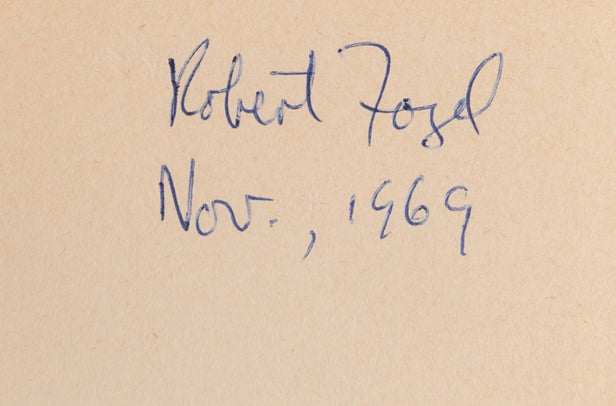 Robert Fogel
Nov., 1969